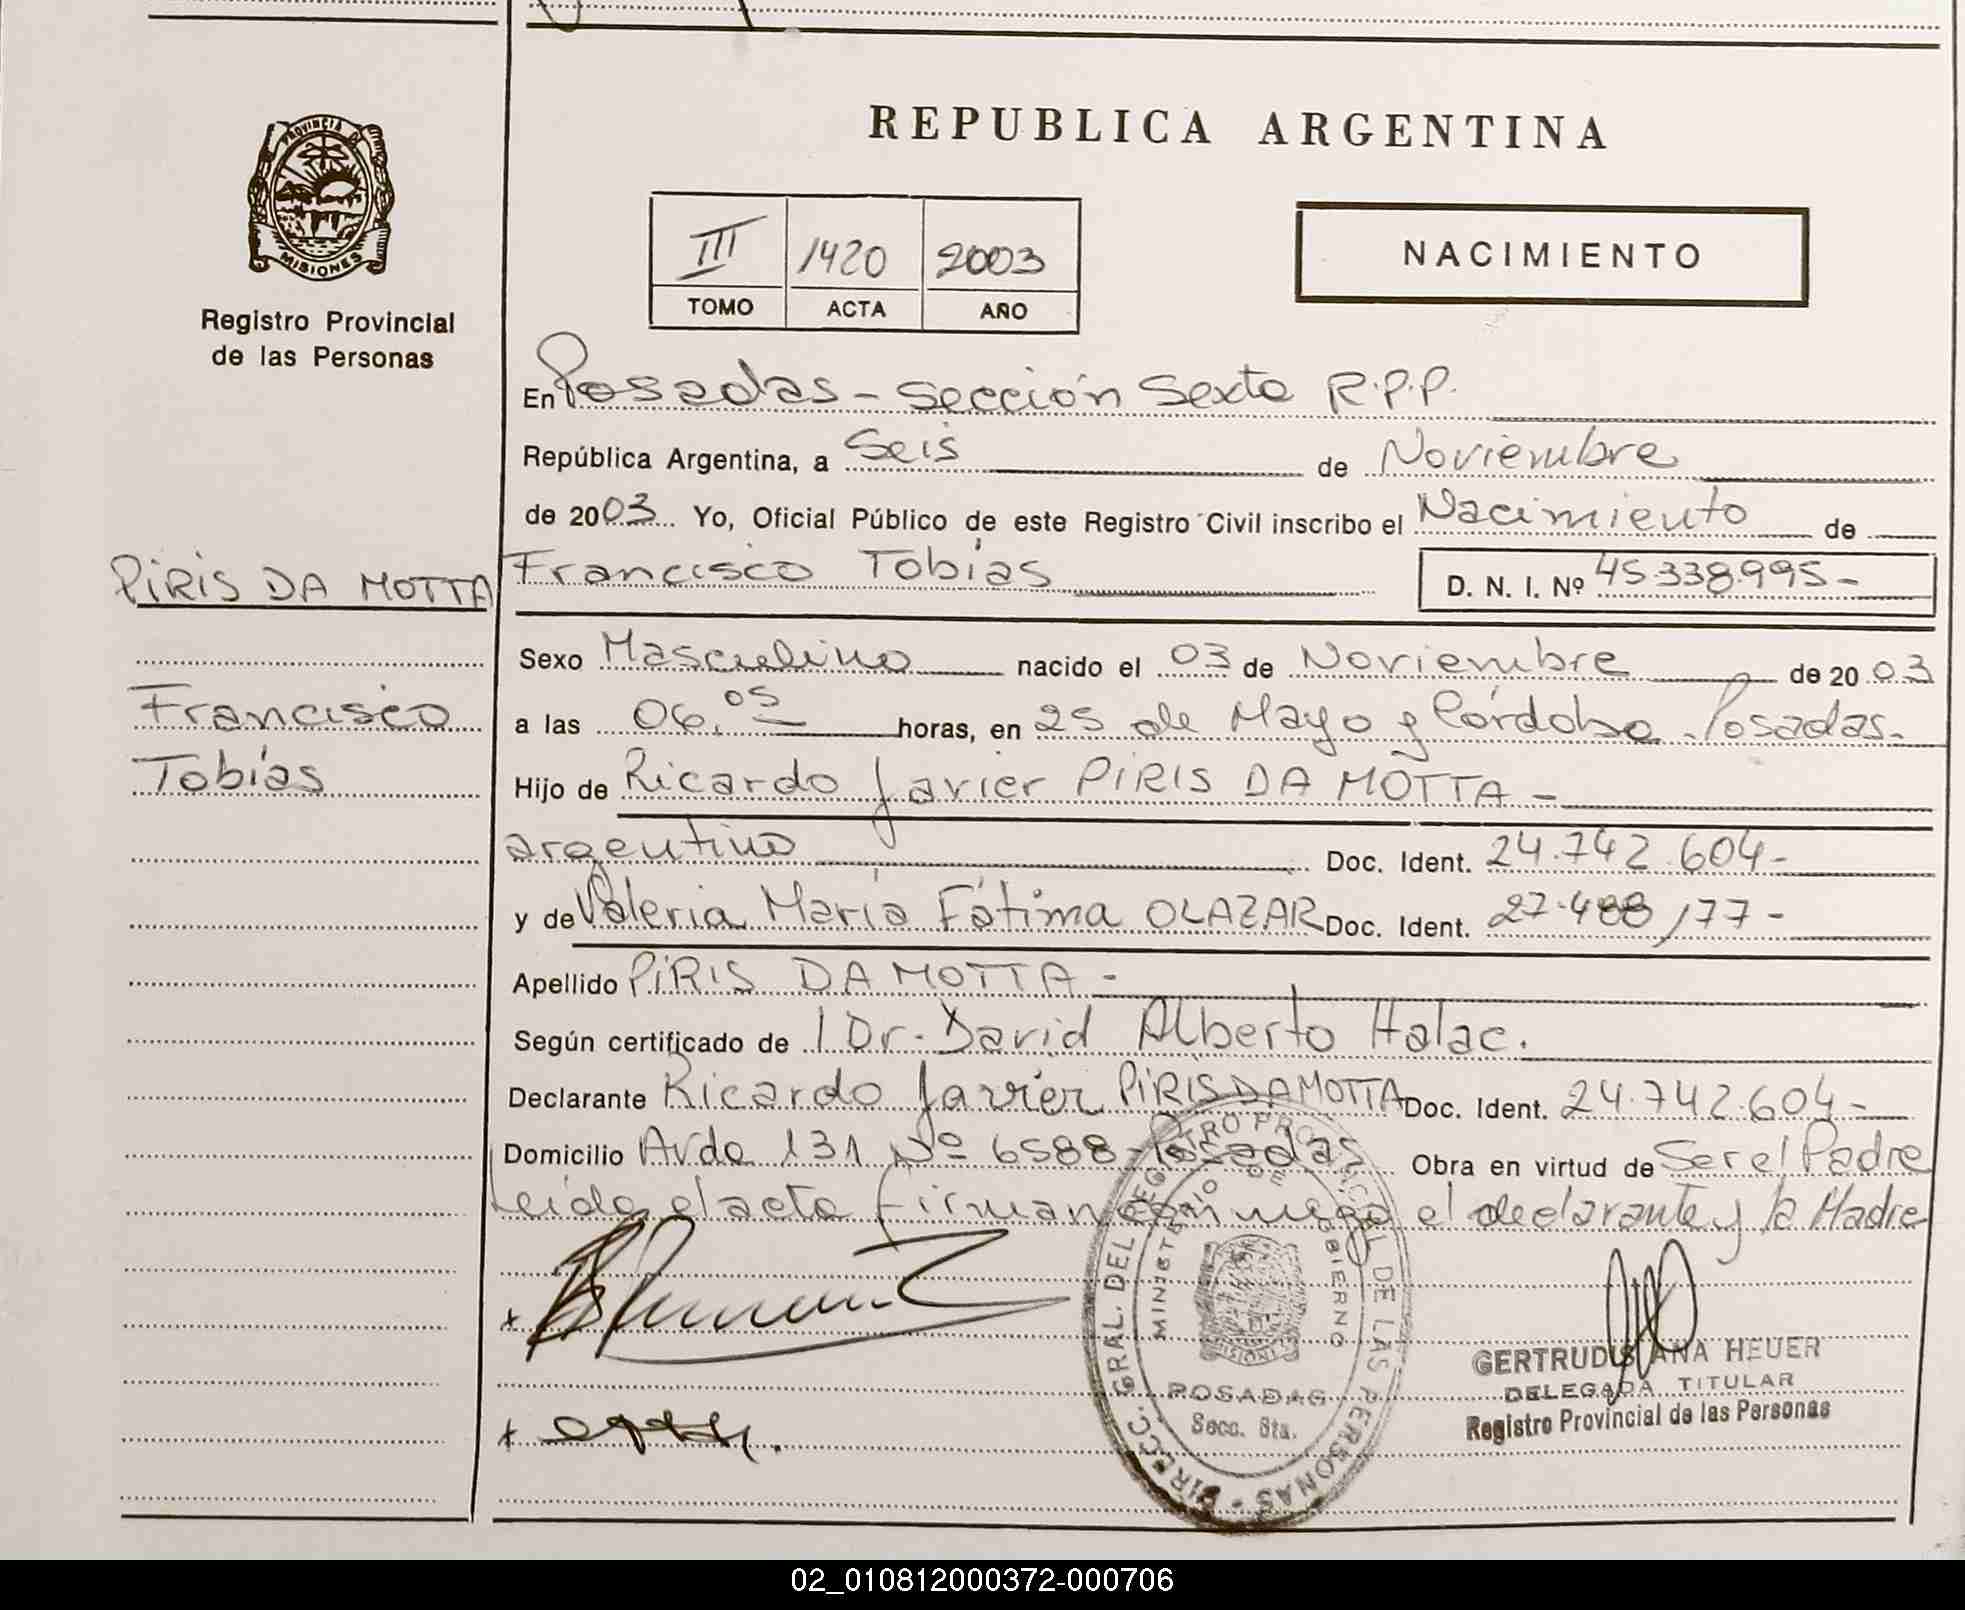 PROVINCIA DE
MISIONES
Registro Provincial
de las Personas
REPUBLICA ARGENTINA
III 1420 2003
TOMO ACTA AÑO
NACIMIENTO
En Posadas - Sección Sexta R.P.P.
República Argentina, a Seis de Noviembre
de 2003 Yo, Oficial Público de este Registro Civil inscribo el Nacimiento de
PIRIS DA MOTTA
Francisco Tobías D. N. I. Nº 45338.995-
Sexo Masculino nacido el 03 de Noviembre de 2003
Francisco
a las 06,05 horas, en 25 de Mayo y Córdoba - Posadas.
Tobías
Hijo de Ricardo Javier PIRIS DA MOTTA -
argentino Doc. Ident. 24.742.604-
y de Valeria María Fátima OLAZAR Doc. Ident. 27.488,177-
Apellido PIRIS DA MOTTA -
Según certificado de l Dr. David Alberto Halac.
Declarante Ricardo Javier PIRIS DA MOTTA Doc. Ident. 24.742.604-
Domicilio Avda 131 Nº 6588 - Posadas Obra en virtud de Ser el Padre
Leída el acta firman conmigo el declarante y la Madre
DIRECC. GRAL. DEL REGISTRO PROVINCIAL DE LAS PERSONAS -
MINISTERIO DE GOBIERNO
POSADAS
Secc. 6ta.
GERTRUDIS ANA HEUER
DELEGADA TITULAR
Registro Provincial de las Personas
02_010812000372-000706